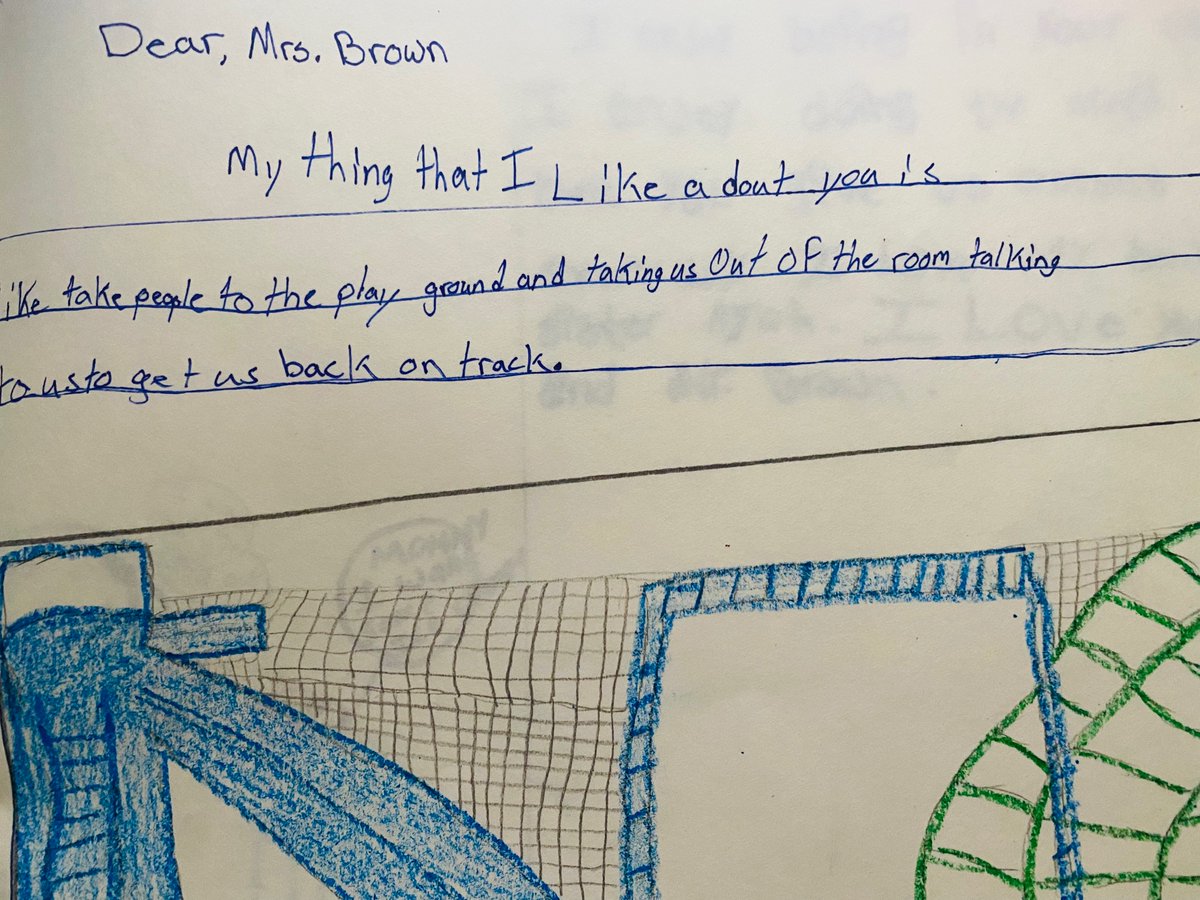 Dear, Mrs. Brown
My thing that I Like a dout you is
like take people to the play ground and taking us Out OF the room talking
to us to get us back on track.